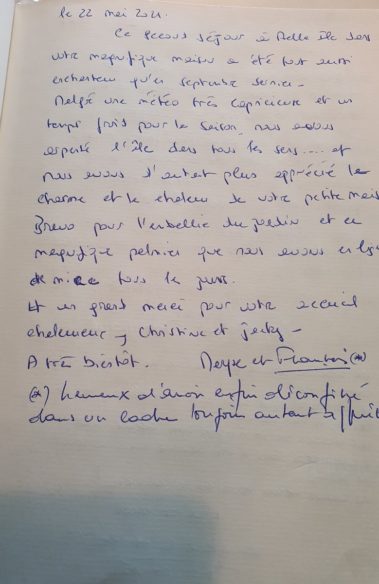 le 22 mai 2021.
Ce second séjour à Belle île dans
votre magnifique maison a été tout aussi
enchanteur qu'en septembre dernier.
Malgré une météo très capricieuse et un
temps froid pour la saison, nous avons
arpenté l'île dans tous les sens.... et
nous avons d'autant plus apprécié le
charme et la chaleur de votre petite mais
Bravo pour l'embellie du jardin et ce
magnifique palmier que nous avons en lign
de mire tous les jours.
Et un grand merci pour votre accueil
chaleureux, Christine et Jacky -
A très bientôt. et (*)
(*) heureux d'avoir enfin déconfiné
dans un cadre toujours autant